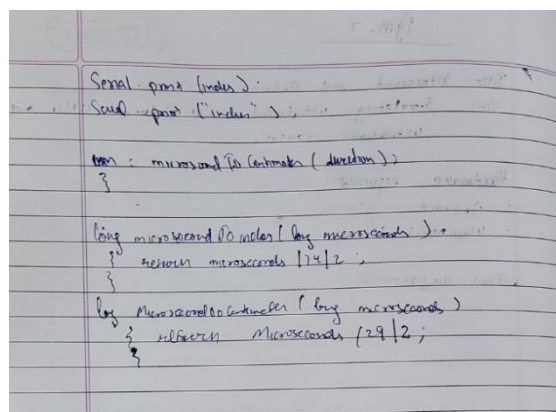 Serial print (inches).
Serial print ("inches");
= microsecond To Centimeter (duration);
}
long microsecond To inches (long microseconds).
{ return microseconds /74/2 ;
}
long Microsecond to Centimeter (long microseconds)
{ return Microseconds /29/2;
}